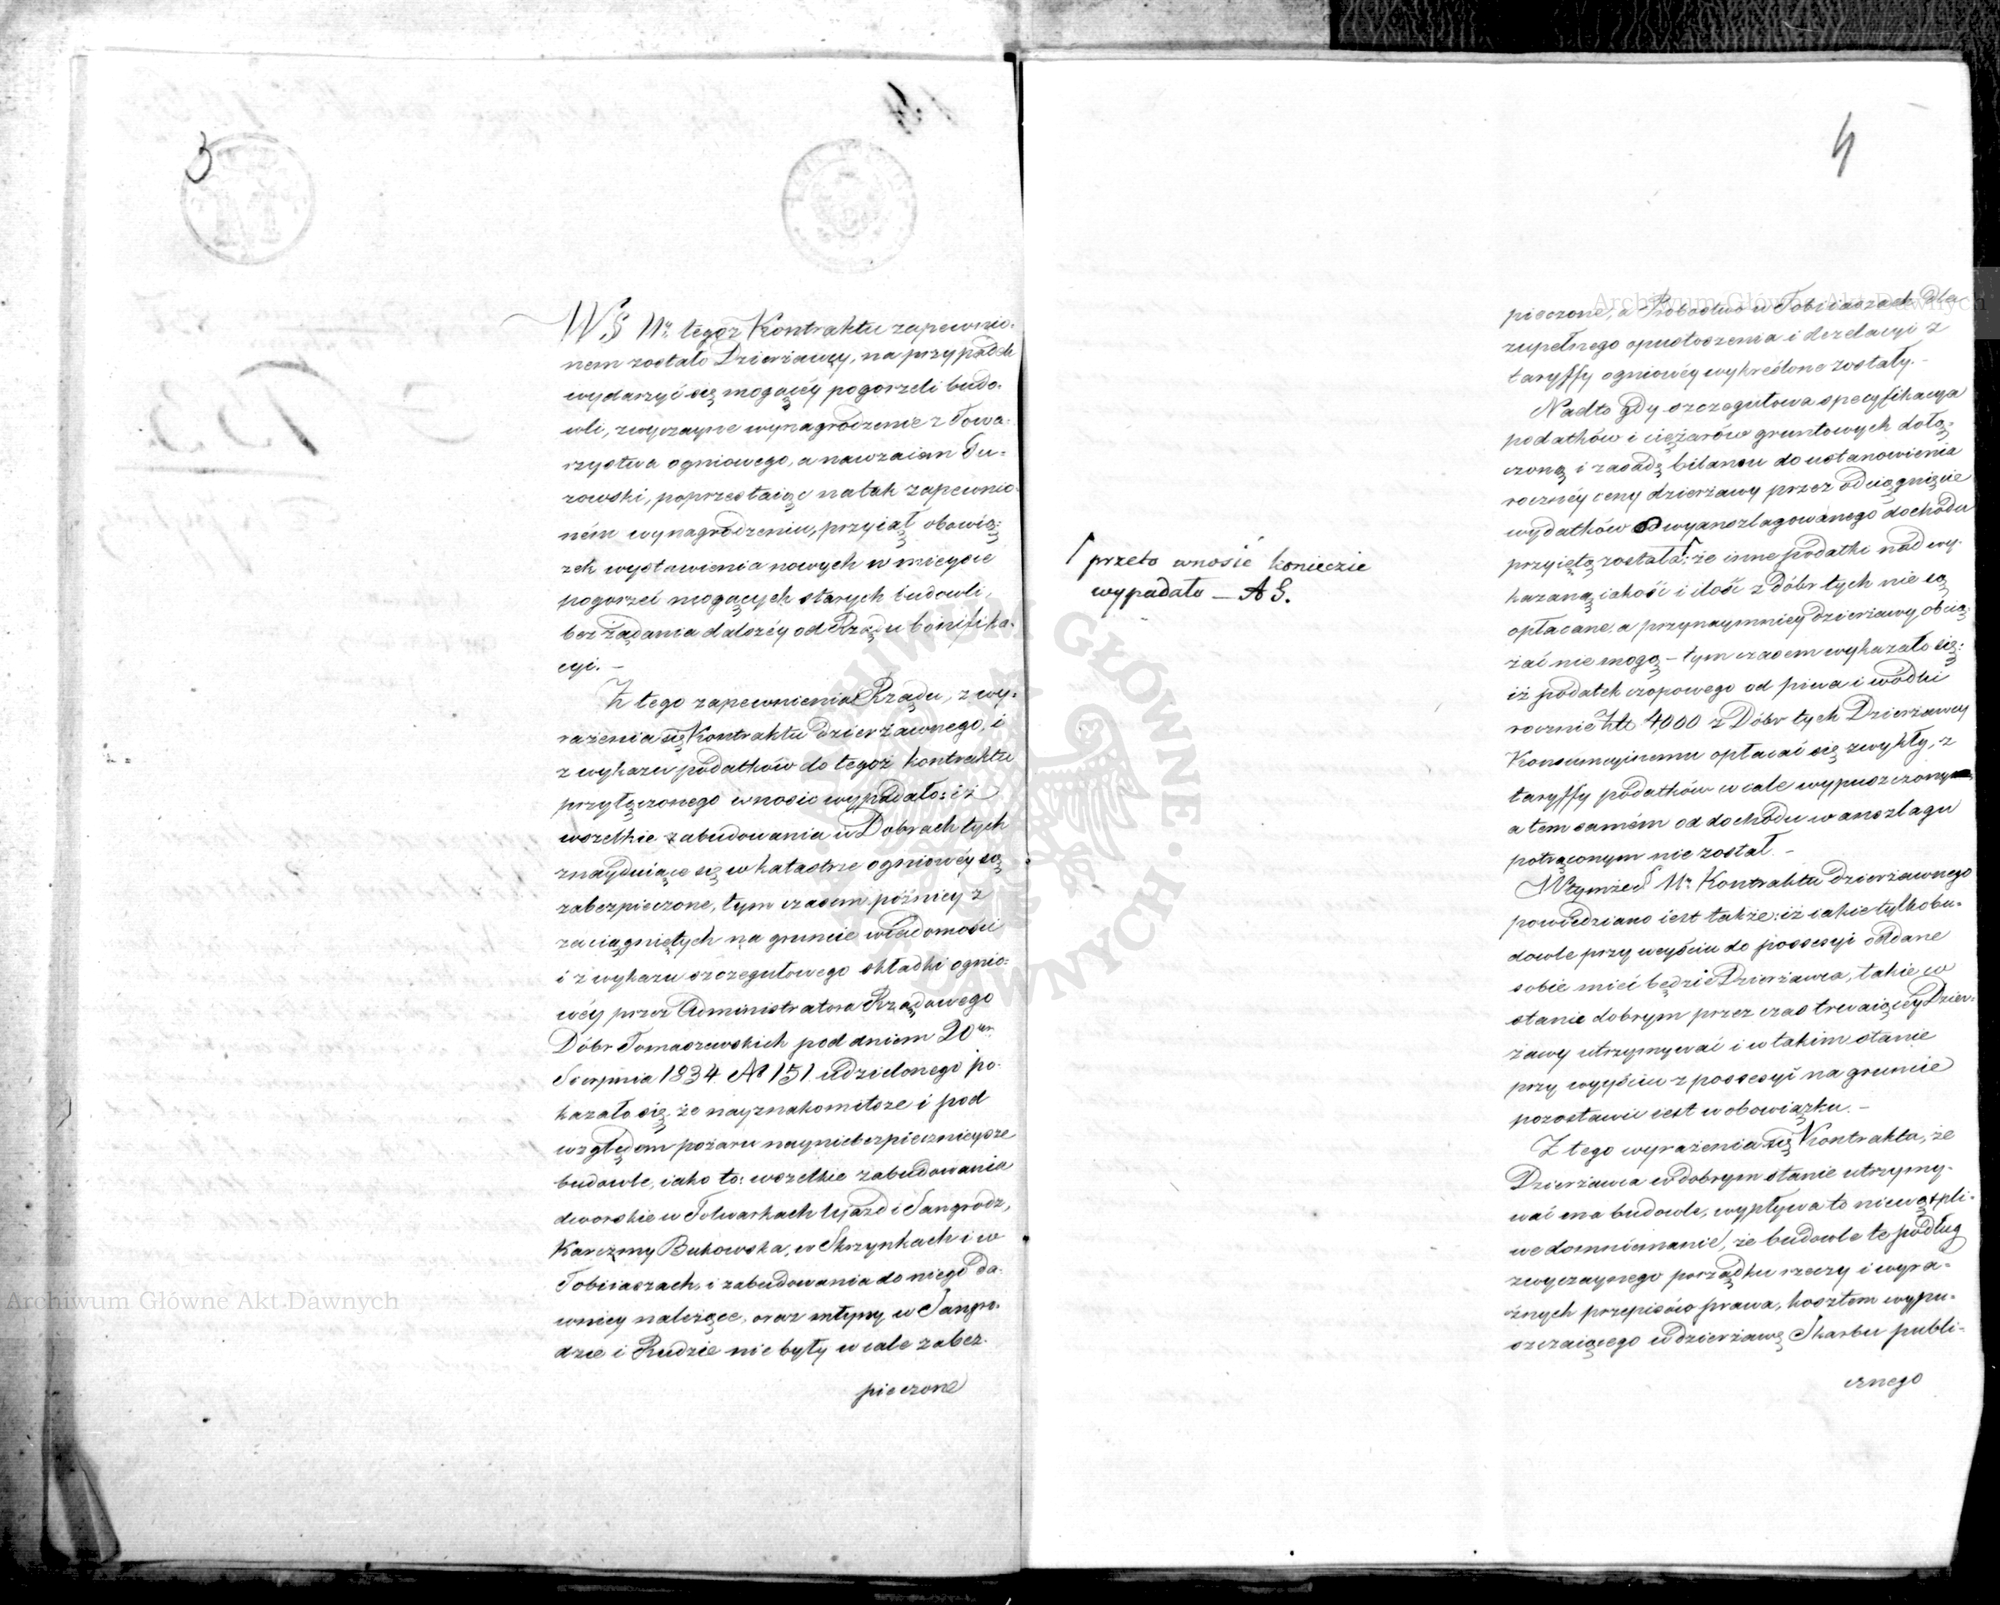 3
W § 11m tegoż Kontraktu zapewnio-
nem zostało Dzierżawcy, na przypadek
wydarzyć się mogącéy pogorzeli budo-
wli, zwyczayne wynagrodzenie z Towa-
rzystwa ogniowego, a nawzaiem Tu-
rowski, poprzestaiąc na tak zapewnio-
ném wynagrodzeniu, przyiął obowią-
zek wystawienia nowych w mieysce
pogorzeć mogących starych budowli,
bez żądania dalszéy od Rządu bonifika-
cyi. –
Z tego zapewnienia Rządu, z wy-
rażenia się Kontraktu dzierżawnego, i
z wykazu podatków do tegoż kontraktu
przyłączonego wnosić wypadało: iż
wszelkie zabudowania w Dobrach tych
znayduiące się w katastrze ogniowéy są
zabezpieczone, tym czasem późniey z
zaciągniętych na gruncie wiadomości
i z wykazu szczegułowego składki ognio-
wéy przez Administratora Rządowego
Dóbr Tomaszewskich pod dniem 20
Sierpnia 1834 No 151 udzielonego po-
kazało się, że nayznakomitsze i pod
względem pożaru nayniebezpiecznieysze
budowle, iako to: wszelkie zabudowania
dworskie w Folwarkach Ujazd i Sangrodz,
Karczmy Bukowska, w Skrzynkach i w
Tobiiaszach, i zabudowania do niego da-
wniey należące, oraz młyny w Sangro-
dzie i Rudzie nie były wcale zabez-
pieczone
4
pieczone, a Probostwo w Tobiiaszach dla
zupełnego opustoszenia i dezelacyi z
taryffy ogniowéy wykreślone zostały. –
Nadto gdy szczegułowa specyfikacya
podatków i ciężarów gruntowych dołą-
czoną i zasadą bilansu do ustanowienia
rocznéy ceny dzierżawy przez odciągnięcie
wydatków od wyanszlagowanego dochodu
przyiętą została: że inne podatki nad wy-
kazaną iakość i ilość z Dóbr tych nie są
opłacane, a przynaymniey dzierżawy obcią-
żać nie mogą – tym czasem wykazało się:
iż podatek czopowego od piwa i wódki
rocznie Złt 4,000 z Dóbr tych Dzierżawcy
Konsumcyinemu opłacać się zwykły, z
taryffy podatków wcale wypuszczonym
a tem samém od dochodu w anszlagu
potrąconym nie został. –
W tymże § 11m Kontraktu dzierżawnego
powiedziano iest także: iż iakie tylko bu-
dowle przy weyściu do possesyi oddane
sobie mieć będzie Dzierżawca, takie w
stanie dobrym przez czas trwaiącéy Dzier-
żawy utrzymywać i w takim stanie
przy wyyściu z possesyi na gruncie
pozostawić iest w obowiązku. –
Z tego wyrażenia się Kontraktu, że
Dzierżawca w dobrym stanie utrzymy-
wać ma budowle, wypływa to niewątpli-
we domniemanie, że budowle te podług
zwyczaynego porządku rzeczy i wyra-
źnych przepisów prawa, kosztem wypu-
szczaiącego w dzierżawę Skarbu publi-
cznego
przeto wnosić koniecznie
wypadało — AS.
Archiwum Główne Akt Dawnych
Archiwum Główne Akt Dawnych
ARCHIWUM GŁÓWNE AKT DAWNYCH